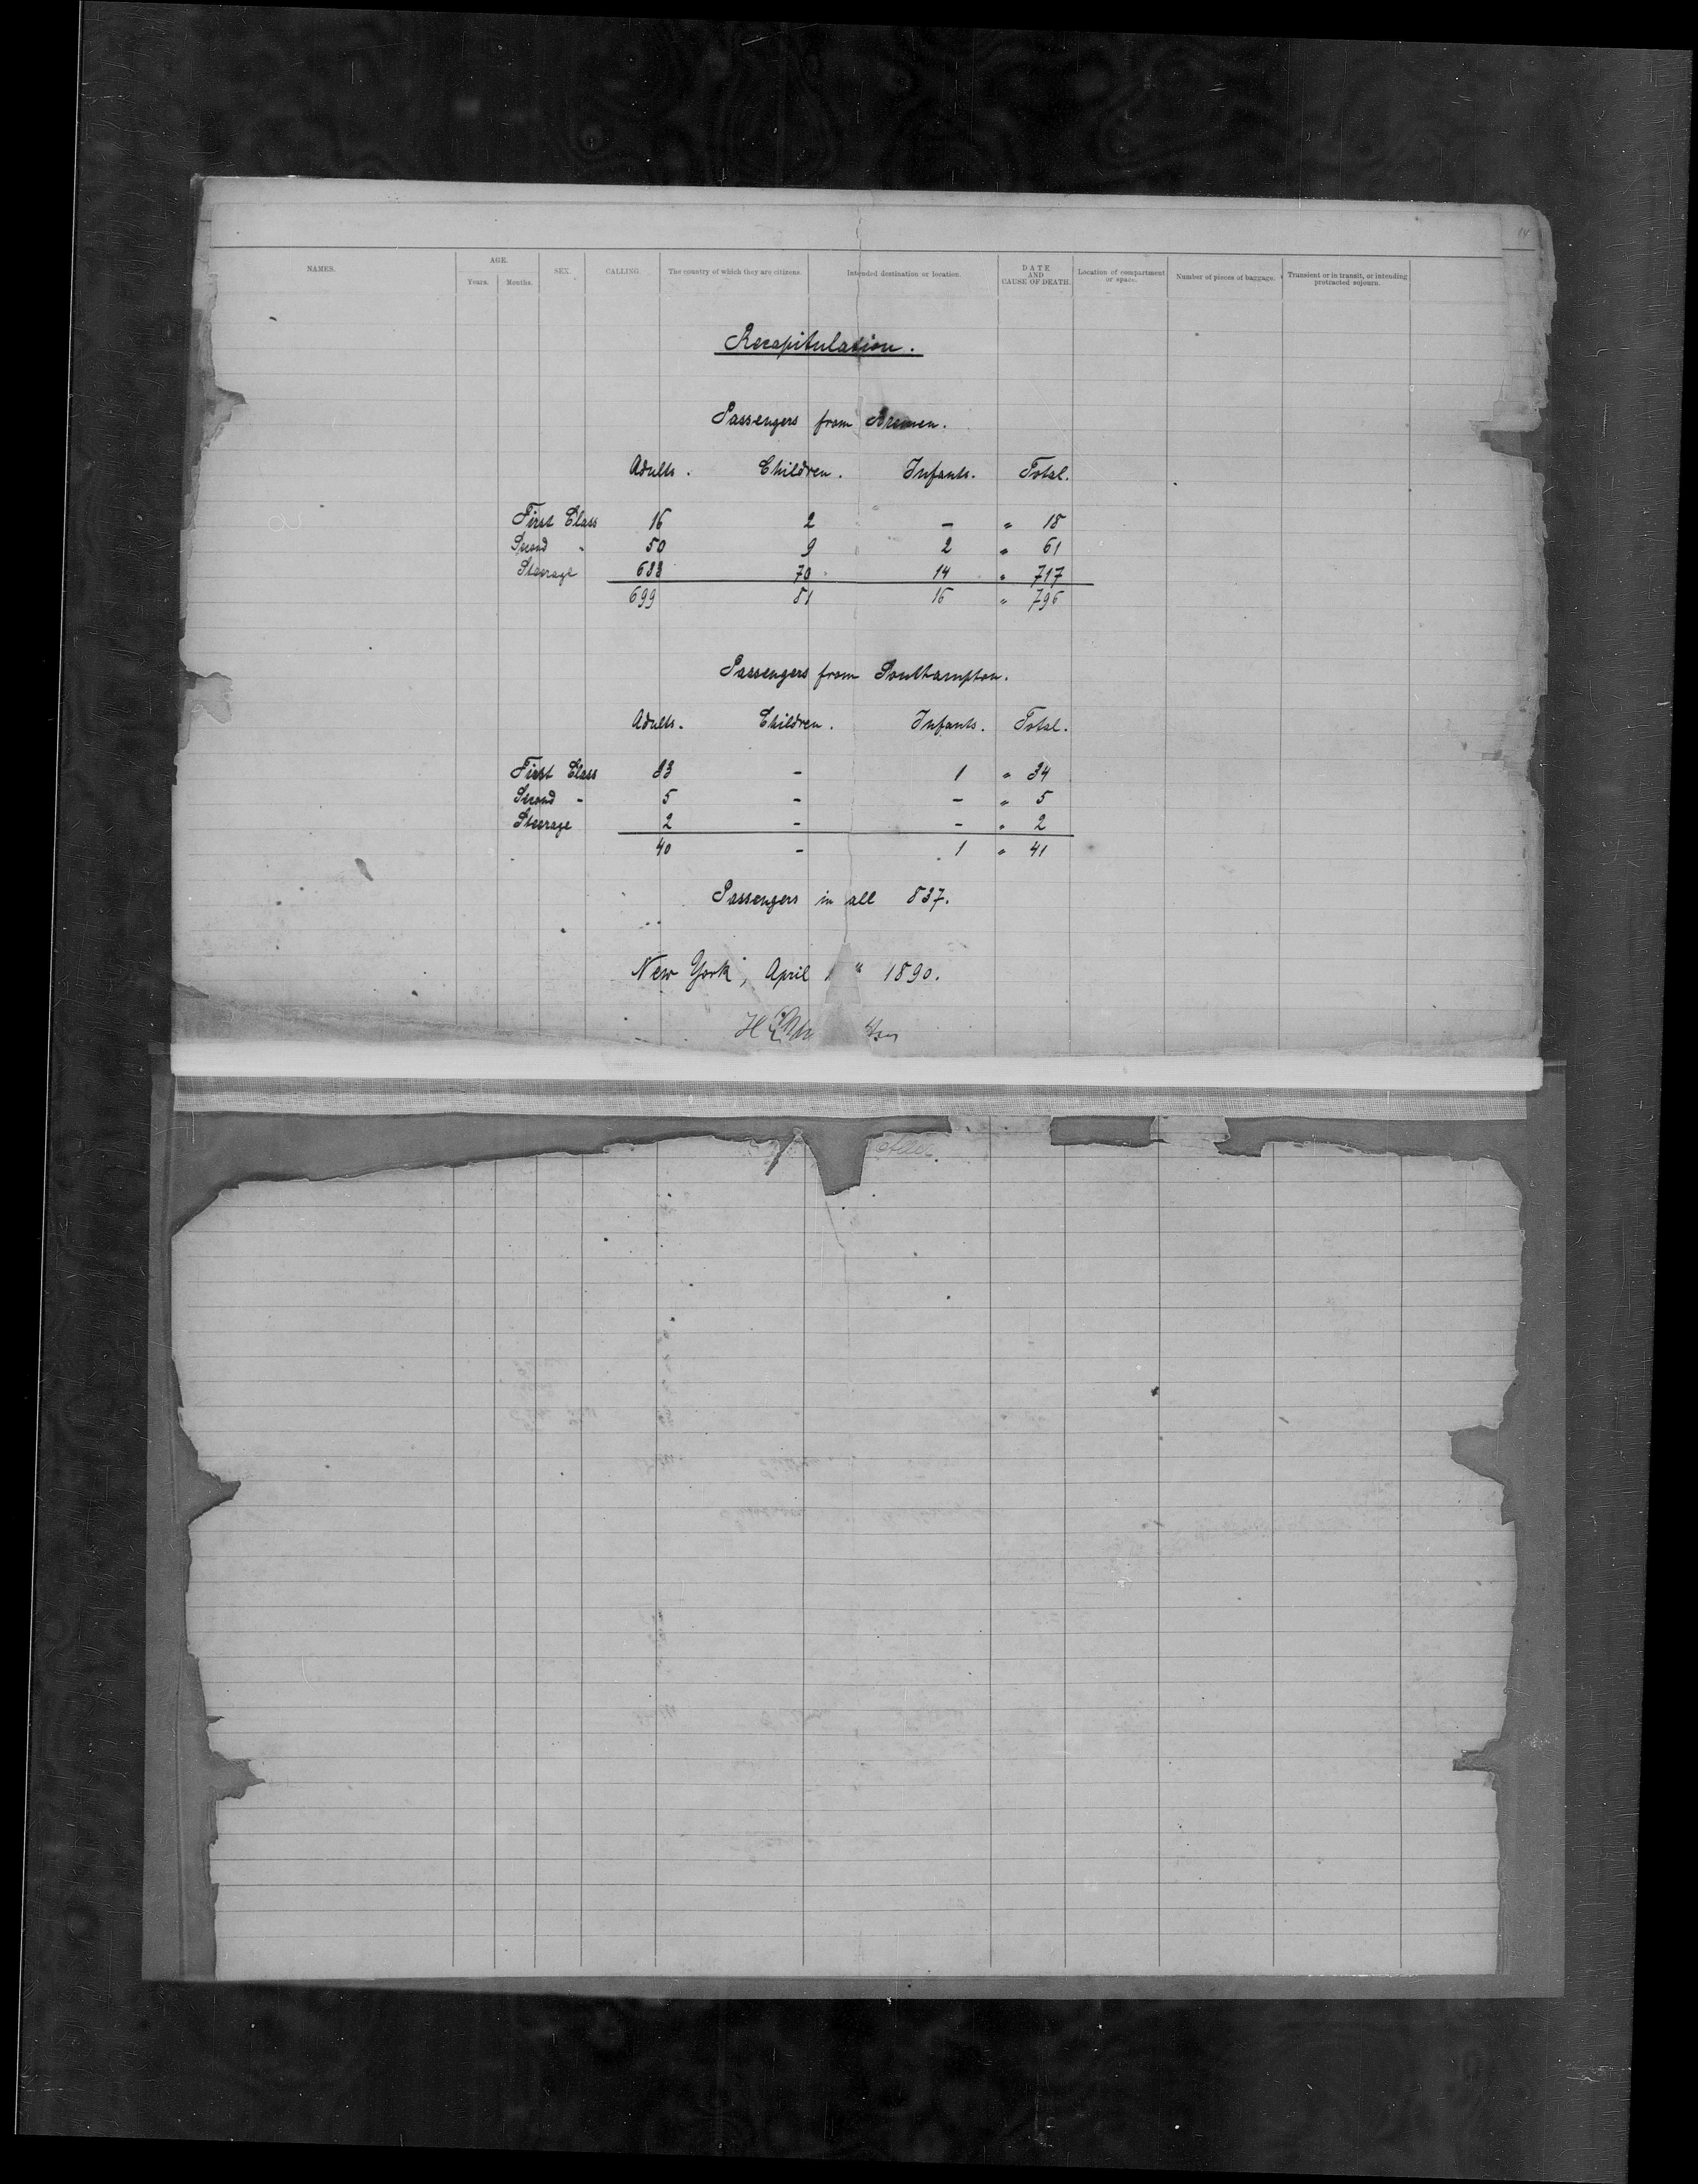 NAMES. AGE. Years. Months. SEX. CALLING. The country of which they are citizens. Intended destination or location. DATE AND CAUSE OF DEATH. Location of compartment or space. Number of pieces of baggage. Transient or in transit, or intending protracted sojourn.
Recapitulation.
Passengers from Bremen.
Adults. Children. Infants. Total.
First Class 16 2 - " 18
Second " 50 9 2 " 61
Steerage 633 70 14 " 717
699 81 16 " 796
Passengers from Southampton.
Adults. Children. Infants. Total.
First Class 33 - 1 " 34
Second " 5 - - " 5
Steerage 2 - - " 2
40 - 1 " 41
Passengers in all 837.
New York, April " 1890.